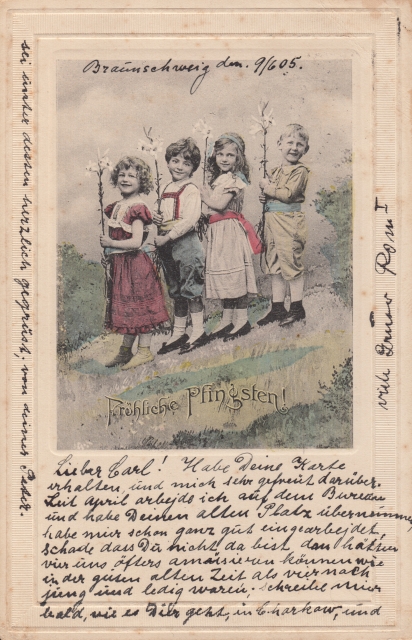 Braunschweig den. 9/6 05.
Fröhliche Pfingsten!
Lieber Carl! Habe Deine Karte
erhalten, und mich sehr gefreut darüber.
Seit April arbeide ich auf dem Bureau
und habe Deinen alten Platz übernommen,
habe mir schon ganz gut eingearbeidet,
schade dass Du nicht da bist, dan hätten
vier uns öfters amüsieren können wie
in der guten alten Zeit als vier noch
jung und ledig waren. schreibe mir
bald, wie es Dir geht, in Charkow, und
sei unter dessen herzlich gegrüsst, von deinem
viele Rom I